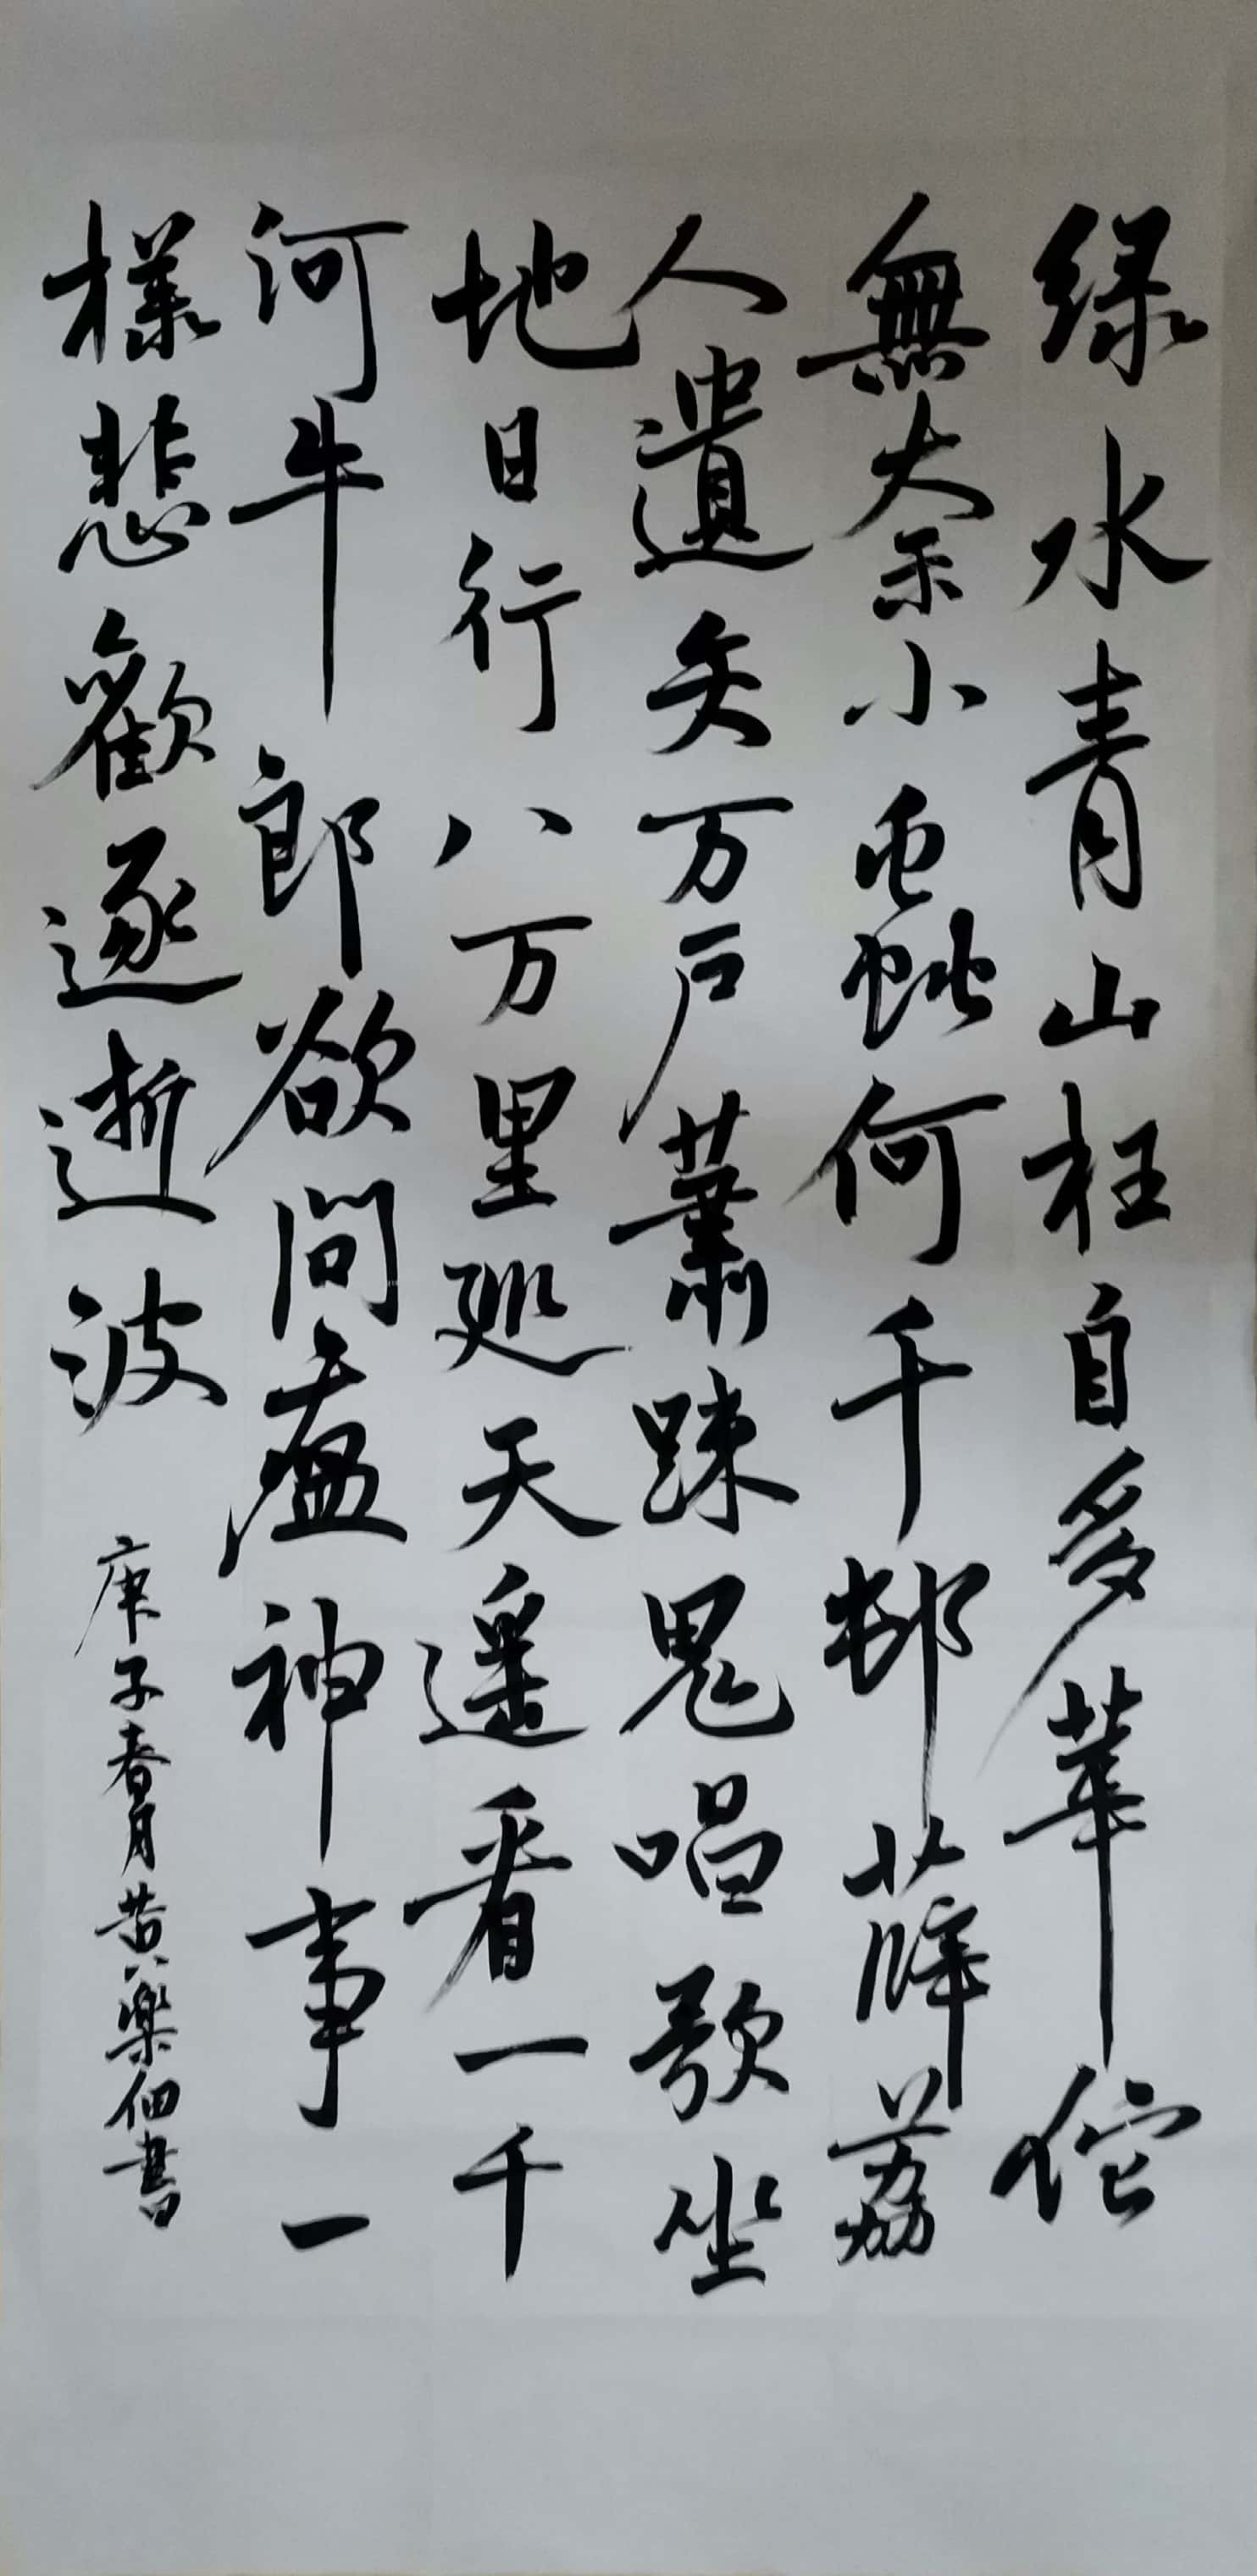 绿水青山枉自多華佗
無奈小虫蚍何千邨薜荔
人遺矢万户蕭踈鬼唱歌坐
地日行八万里廵天遥看一千
河牛郎欲問瘟神事一
樣悲歡逐逝波
庚子春月黄樂佃書